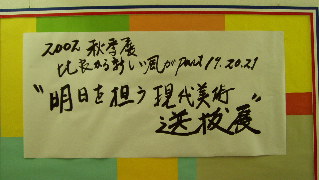 2002 秋季展
比良から新しい風がpart 19.20.21
"明日を担う現代美術
選抜展"